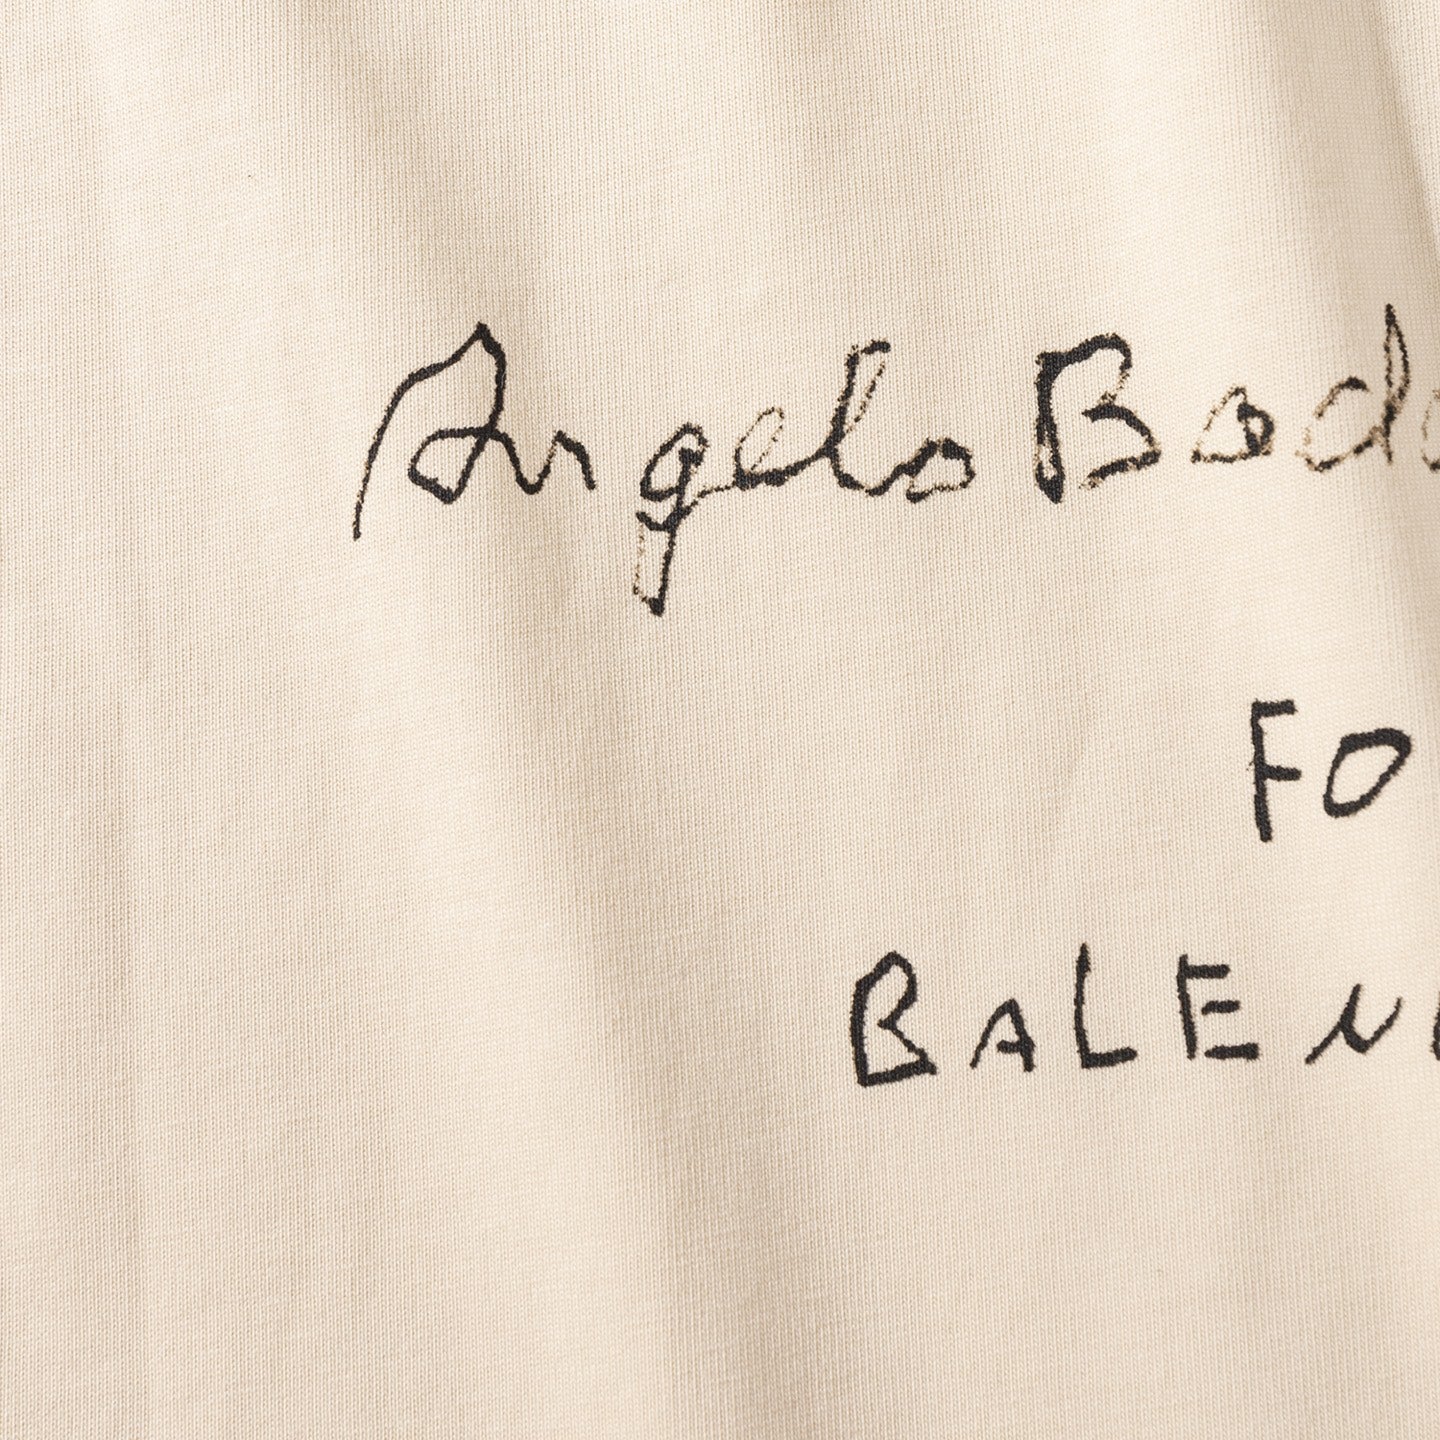 Angelo Bad
FO
BALEN